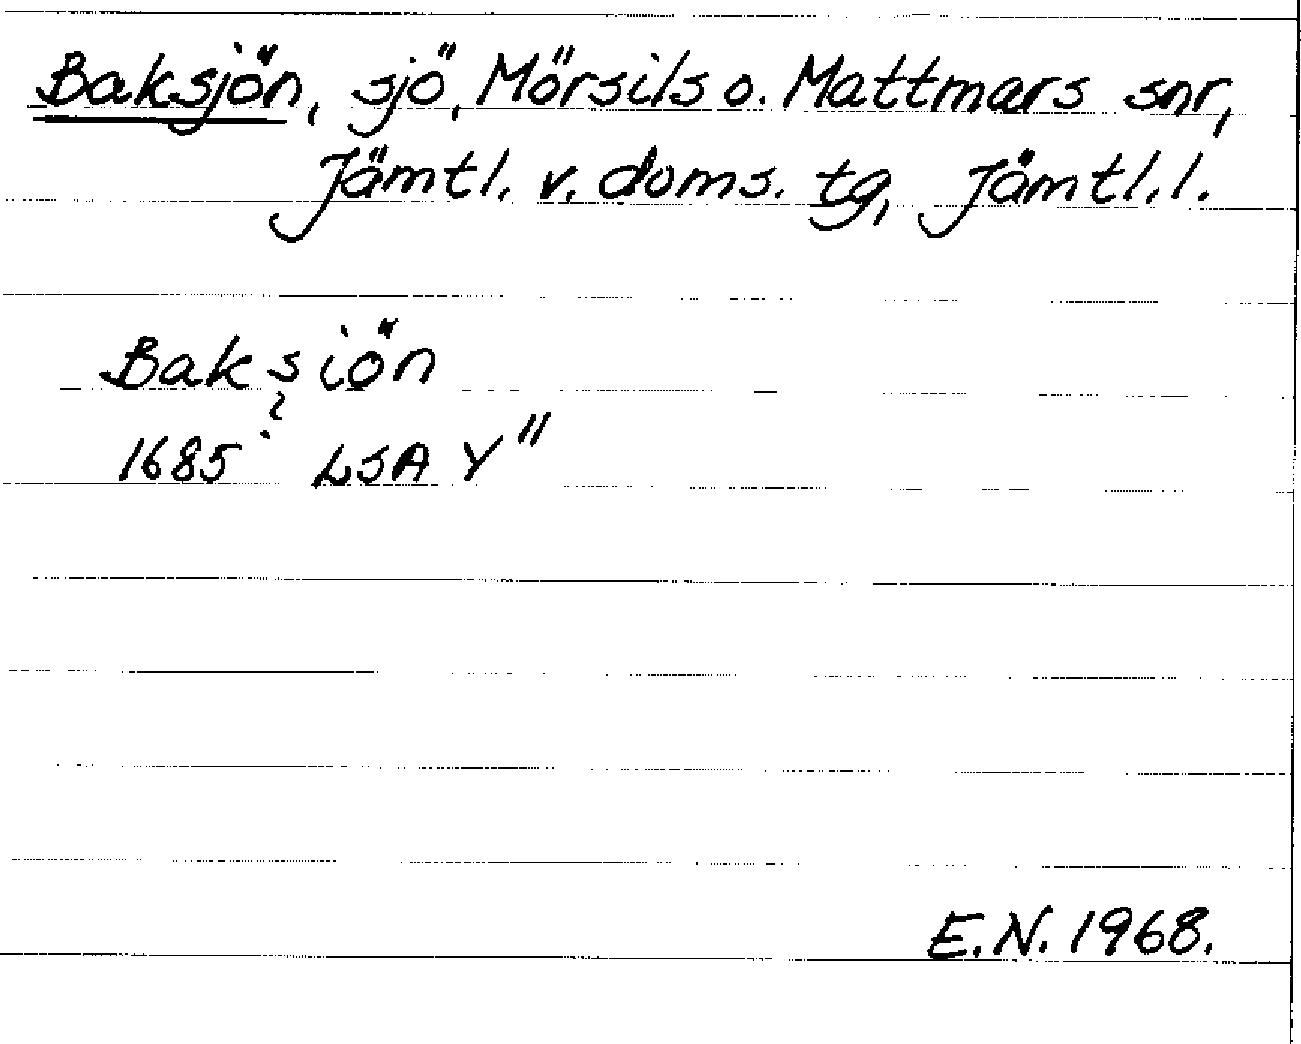 Baksjön, sjö, Mörsils o. Mattmars snr,
Jämtl. v. doms. tg, Jämtl. l.
Baksiön
?
1685 LSA Y"
E.N. 1968.